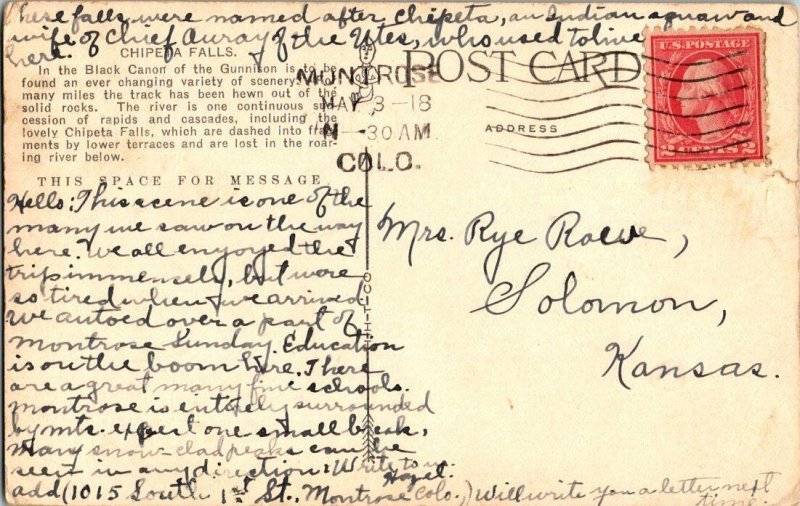 These falls were named after Chipeta, an Indian squaw and
wife of Chief Auray of the Utes, who used to live
here.
CHIPETA FALLS.
In the Black Canon of the Gunnison is to be
found an ever changing variety of scenery. For
many miles the track has been hewn out of the
solid rocks. The river is one continuous suc-
cession of rapids and cascades, including the
lovely Chipeta Falls, which are dashed into frag-
ments by lower terraces and are lost in the roar-
ing river below.
POST CARD
MONTROSE
MAY 3-18
-30AM
COLO.
U.S. POSTAGE
2 CENTS 2
ADDRESS
THIS SPACE FOR MESSAGE
Hello: This scene is one of the
many we saw on the way
here. We all enyoyed the
trip immensely, but were
so tired when we arrived
We autoed over a part of
Montrose Sunday. Education
is on the boom here. There
are a great many fine schools.
Montrose is entirely surrounded
by mts. exept one small break,
Many snow-clad peaks can be
seen in any direction: Write to us.
Hazel.
add (1015 South 1st St., Montrose Colo.) Will write you a letter next
time.
Mrs. Rye Rowe,
Solomon,
Kansas.